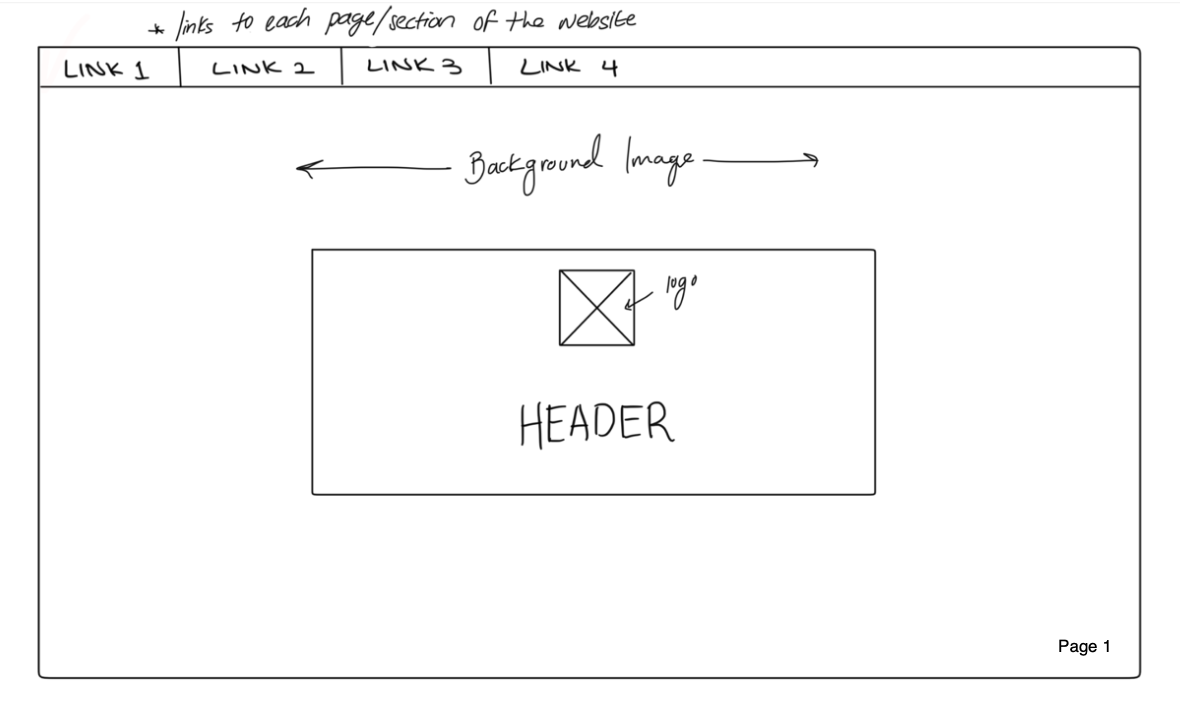 * links to each page/section of the website
LINK 1 LINK 2 LINK 3 LINK 4
Background Image
logo
HEADER
Page 1